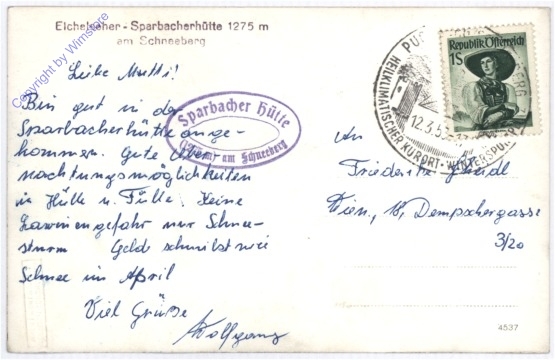 Eichelseher - Sparbacherhütte 1275 m
am Schneeberg
Copyright by Wimstore
Liebe Mutti!
Bin gut in der
Sparbacherhütte ange-
kommen. Gute Über-
nachtungsmöglichkeiten
in Hülle u. Fülle. Keine
Lawinengefahr nur Schnee-
sturm Gelde schmilzt wie
Schnee im April
Viel Grüße
Wolfgang
Sparbacher Hütte
am Schneeberg
HEILKLIMATISCHER KURORT · WINTERSPORT
12.3.5
Republik Österreich
1S
An
Wien, 18, Dempschergasse
3/20
4537